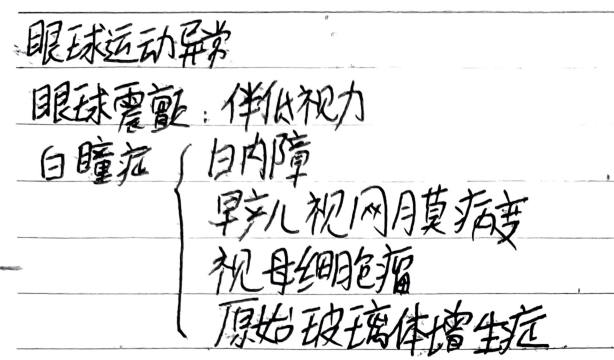 眼球运动异常
眼球震颤：伴低视力
白瞳症 { 白内障
早产儿视网膜病变
视母细胞瘤
原始玻璃体增生症